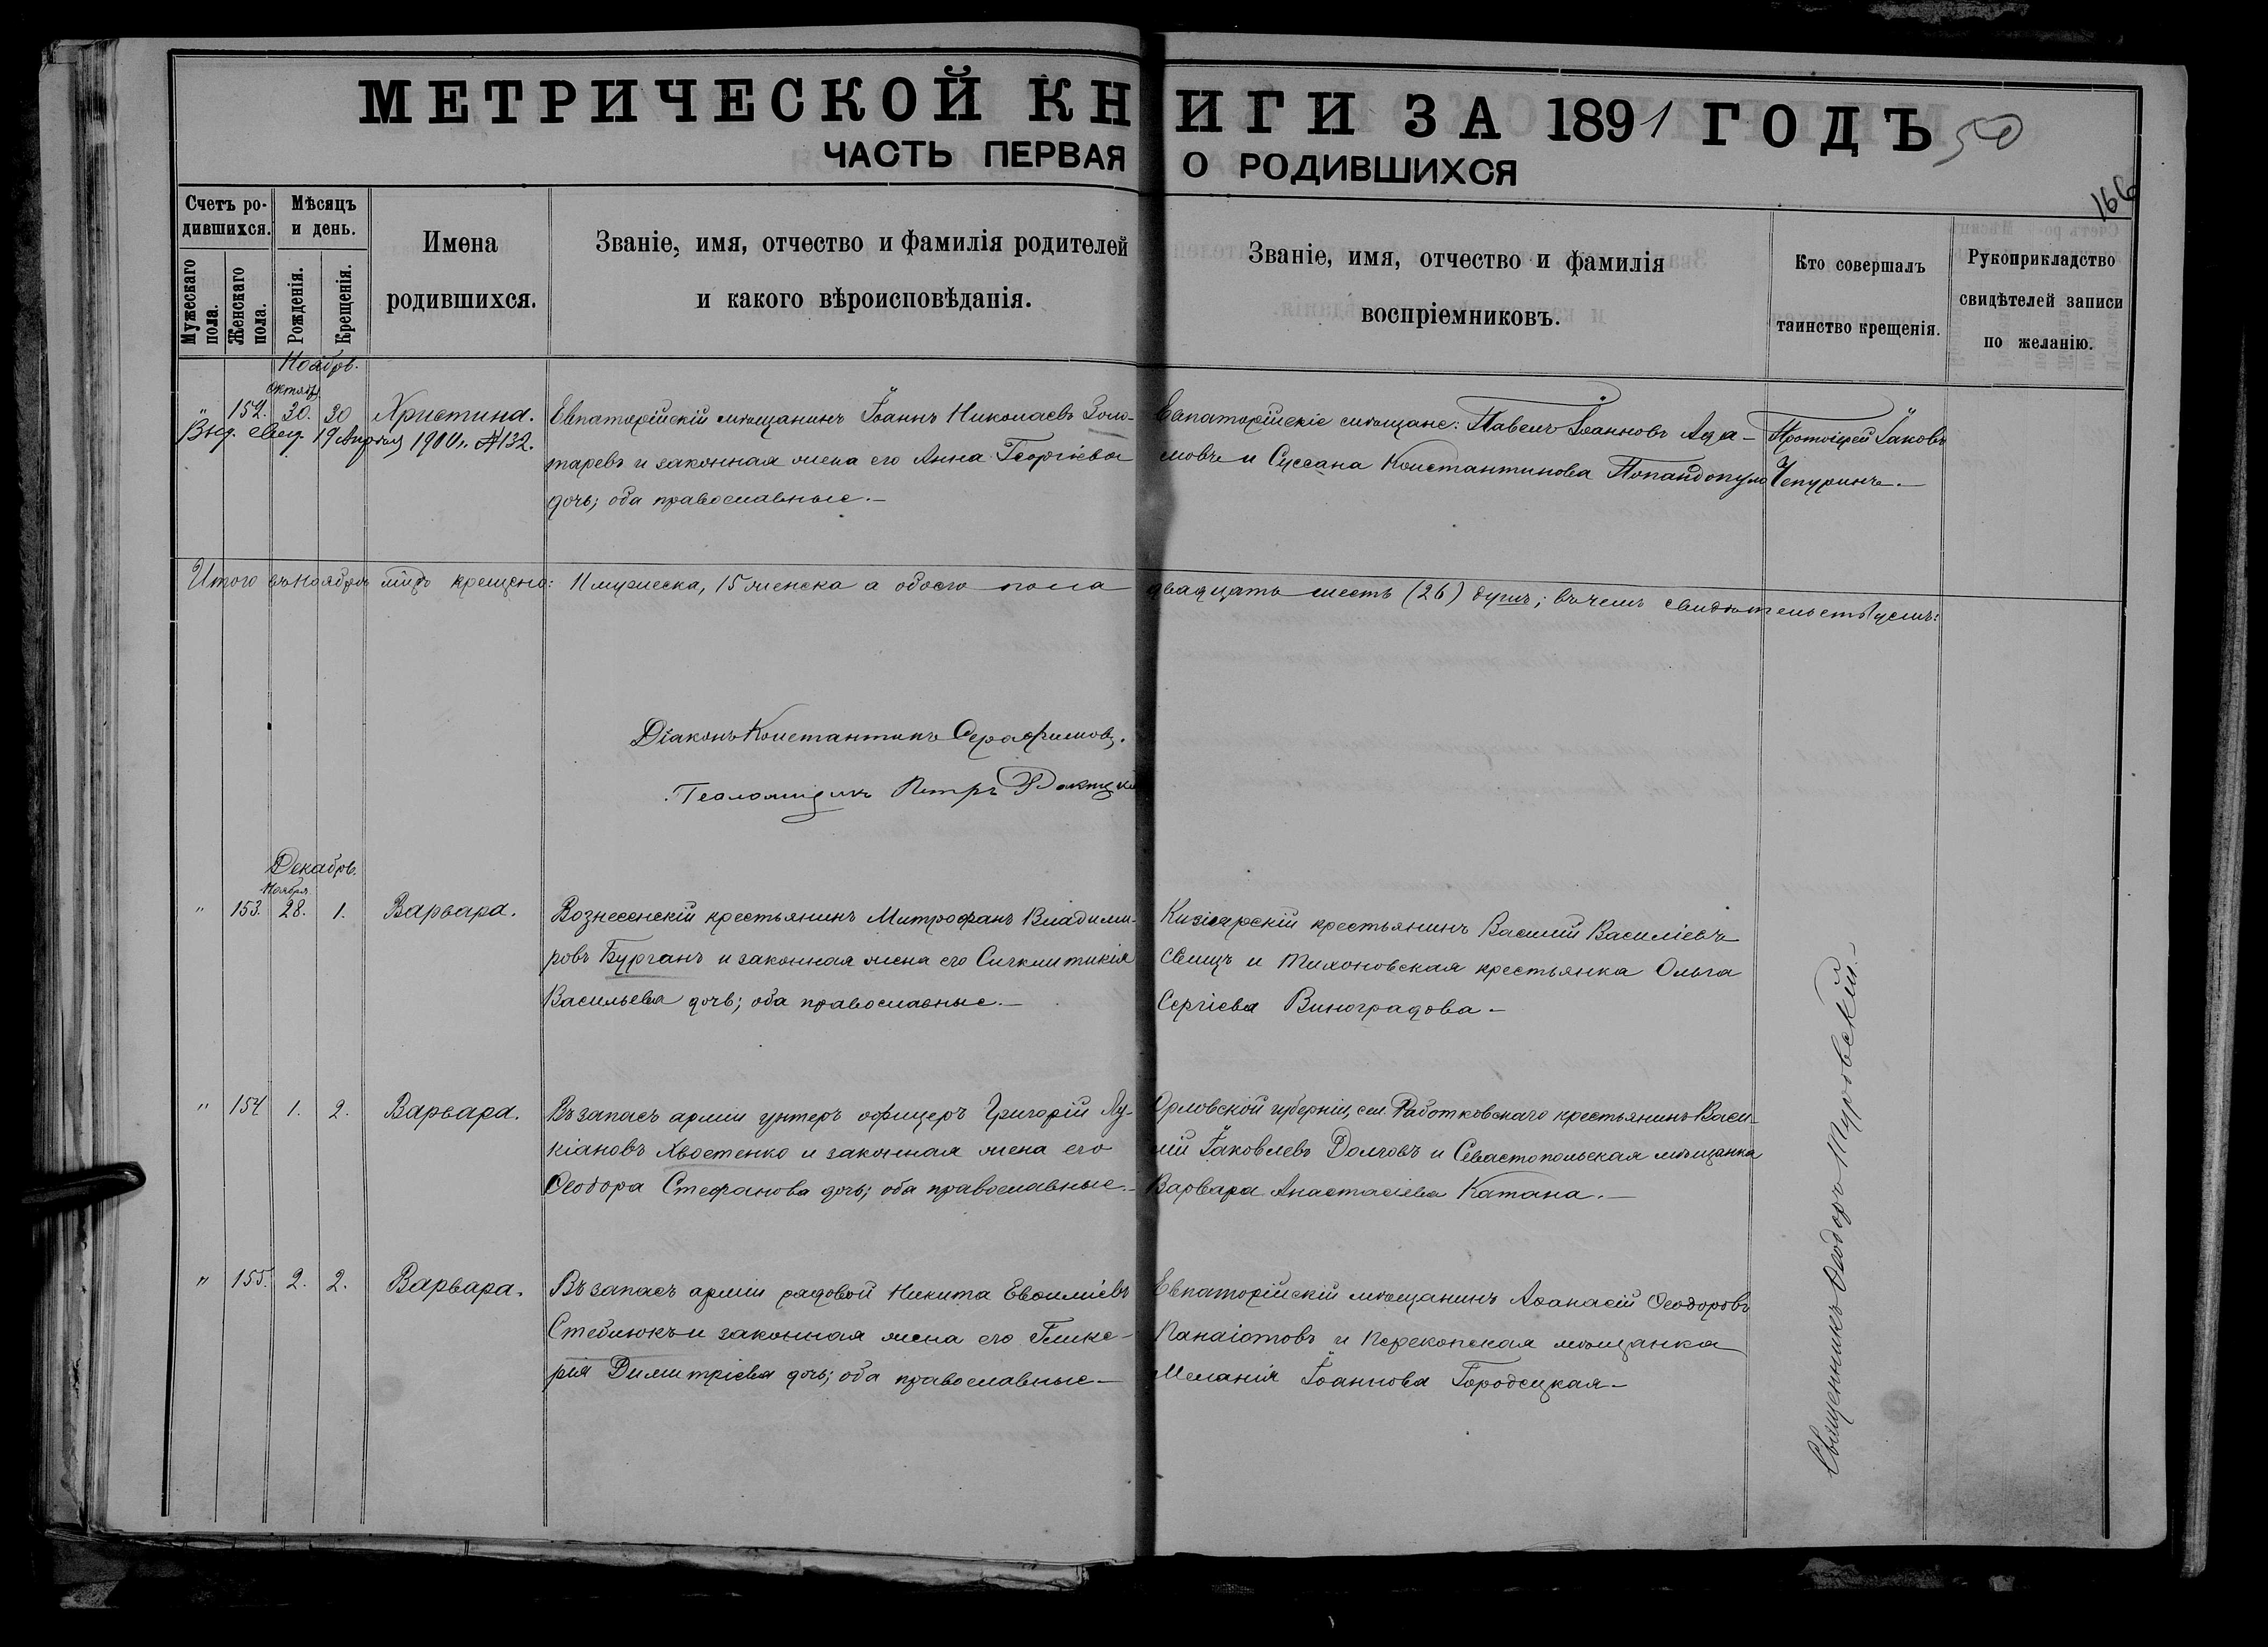 МЕТРИЧЕСКОЙ КНИГИ ЗА 1891 ГОДЪ
50
ЧАСТЬ ПЕРВАЯ О РОДИВШИХСЯ
166
Счетъ ро-
дившихся.
Мужескаго
пола.
Женскаго
пола.
Мѣсяцъ
и день.
Рожденія.
Крещенія.
Имена
родившихся.
Званіе, имя, отчество и фамилія родителей
и какого вѣроисповѣданія.
Званіе, имя, отчество и фамилія
воспріемниковъ.
Кто совершалъ
таинство крещенія.
Рукоприкладство
свидѣтелей записи
по желанію.
Ноябрь.
Октябр.
" 152. 30. 30 Христина.
Выд. свид. 19 Апрѣля 1900 г. №132.
Евпаторійскій мѣщанинъ Іоаннъ Николаевъ Золо-
таревъ и законная жена его Анна Георгіева
дочь; оба православные.—
Евпаторійскіе мѣщане: Павелъ Іоанновъ Ада-
мовъ и Суссана Константинова Попандопуло
Протоіерей Іаковъ
Чепуринъ.—
Итого въ ноябрѣ м̃цѣ крещено: 11 мужеска, 15 женска а обоего пола двадцать шесть (26) душъ; въ чемъ свидѣтельствуемъ:
Діаконъ Константинъ Серафимовъ.
Псаломщикъ Петръ
Декабрь.
Ноября.
" 153. 28. 1. Варвара.
Вознесенскій крестьянинъ Митрофанъ Владими-
ровъ Бурганъ и законная жена его Синклитикія
Васильева дочь; оба православные.—
крестьянинъ Василій Василіевъ
Свищъ и Тихоновская крестьянка Ольга
Сергіева Виноградова—
" 154 1. 2. Варвара.
Въ запасѣ арміи унтеръ офицеръ Григорій Лу-
кіановъ Хвостенко и законная жена его
Ѳеодора Стефанова дочь; оба православные.—
Орловской губерніи, сел. Работковскаго крестьянинъ Васи-
лій Іаковлевъ Долговъ и Севастопольская мѣщанка
Варвара Анастасіева Катана.—
" 155. 2. 2. Варвара.
Въ запасѣ арміи рядовой Никита Евѳиміевъ
Стеблюкъ и законная жена его Глике-
рія Димитріева дочь; оба православные—
Евпаторійскій мѣщанинъ Аѳанасій Ѳеодоровъ
Панаіотовъ и Перекопская мѣщанка
Меланія Іоаннова Городецкая—
Священникъ Ѳеодоръ Туровскій.